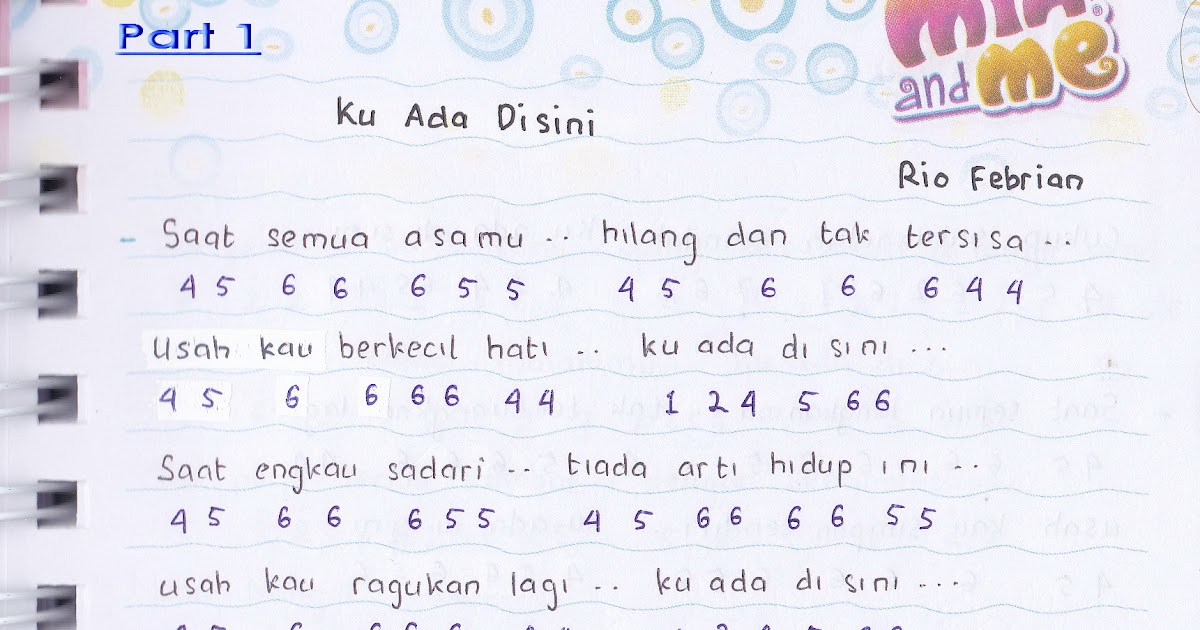 Part 1
and me
Ku Ada Disini
Rio Febrian
- Saat semua asamu .. hilang dan tak tersisa ..
4 5 6 6 6 5 5 4 5 6 6 6 4 4
Usah kau berkecil hati .. ku ada di sini ...
4 5 6 6 6 6 4 4 1 2 4 5 6 6
Saat engkau sadari .. tiada arti hidup ini ..
4 5 6 6 6 5 5 4 5 6 6 6 6 5 5
usah kau ragukan lagi .. ku ada di sini ...